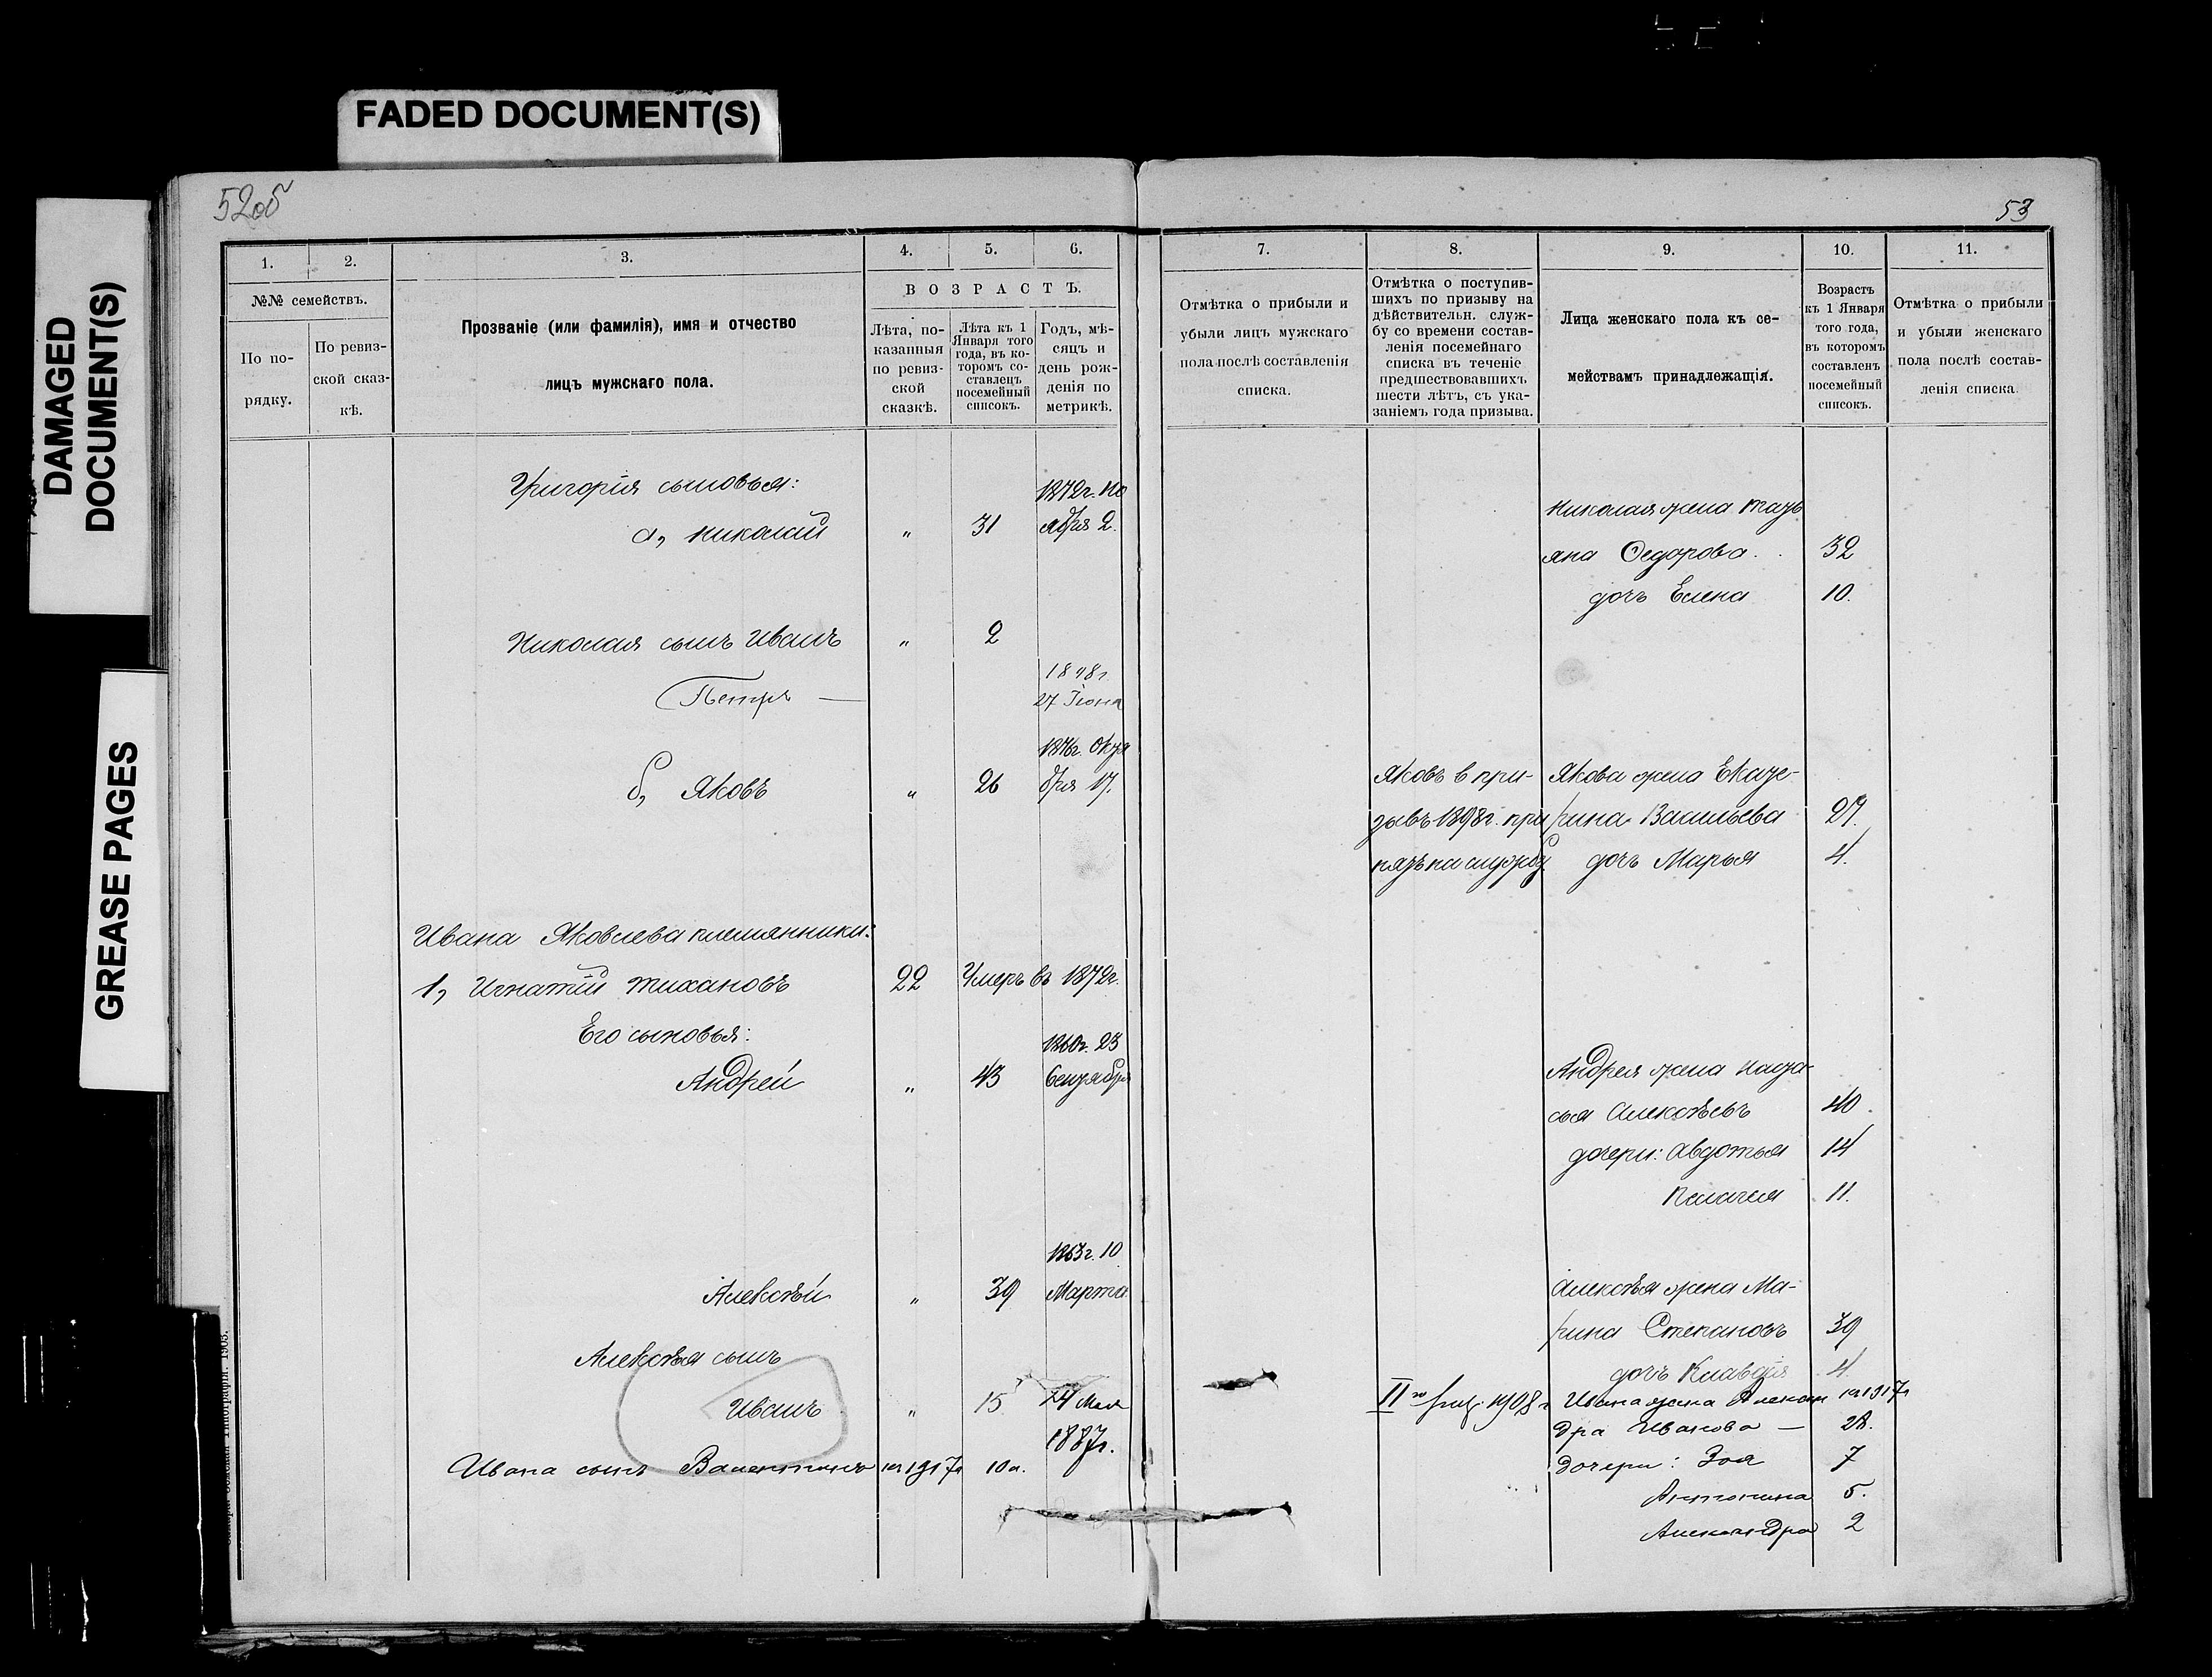 FADED DOCUMENT(S)
DAMAGED
DOCUMENT(S)
GREASE PAGES
52об
53
1.
2.
3.
4.
5.
6.
№№ семействъ.
По по-
рядку.
По ревиз-
ской сказ-
кѣ.
Прозваніе (или фамилія), имя и отчество
лицъ мужскаго пола.
ВОЗРАСТЪ.
Лѣта, по-
казанныя
по ревиз-
ской
сказкѣ.
Лѣта къ 1
Января того
года, въ ко-
торомъ со-
ставленъ
посемейный
списокъ.
Годъ, мѣ-
сяцъ и
день рож-
денія по
метрикѣ.
Григорія сыновья:
1872г. Но
а, Николай " 31 ября 2.
Николая сынъ Иванъ " 2
Петръ —
27 Іюня
1876г. Октя
б, Яковъ " 26 бря 17.
Ивана Яковлева племянники:
1, Игнатій Тихановъ 22 Умеръ въ 1872г.
Его сыновья:
1860г. 23
Андрей " 43 Сентября
1863г. 10
Алексѣй " 39 Марта
Алексѣя сынъ
Иванъ " 15 24 Мая
1887г.
Ивана сынъ Валентинъ на 1917г 10л.
7.
8.
9.
10.
11.
Отмѣтка о прибыли и
убыли лицъ мужскаго
пола послѣ составленія
списка.
Отмѣтка о поступив-
шихъ по призыву на
дѣйствительн. служ-
бу со времени состав-
ленія посемейнаго
списка въ теченіе
предшествовавшихъ
шести лѣтъ, съ ука-
заніемъ года призыва.
Лица женскаго пола къ се-
мействамъ принадлежащія.
Возрастъ
къ 1 Января
того года,
въ которомъ
составленъ
посемейный
списокъ.
Отмѣтка о прибыли
и убыли женскаго
пола послѣ состав-
ленія списка.
Николая жена Тать
яна Ѳедорова. 32
дочь Елена 10.
Яковъ в при-
зывъ 1898г. при
нятъ на службу.
Якова жена Екате-
рина Васильева 27.
дочь Марья 4.
Андрея жена Ната
сья Алексѣевъ 40.
дочери: Авдотья 14
Пелагея 11.
Алексѣя жена Ма-
рина Степановъ 39
дочь Клавдія 4.
1908г
Ивана жена Алексан на 1917г
дра Иванова — 28.
дочери: Зоя 7
Антонина 5.
Александра 2